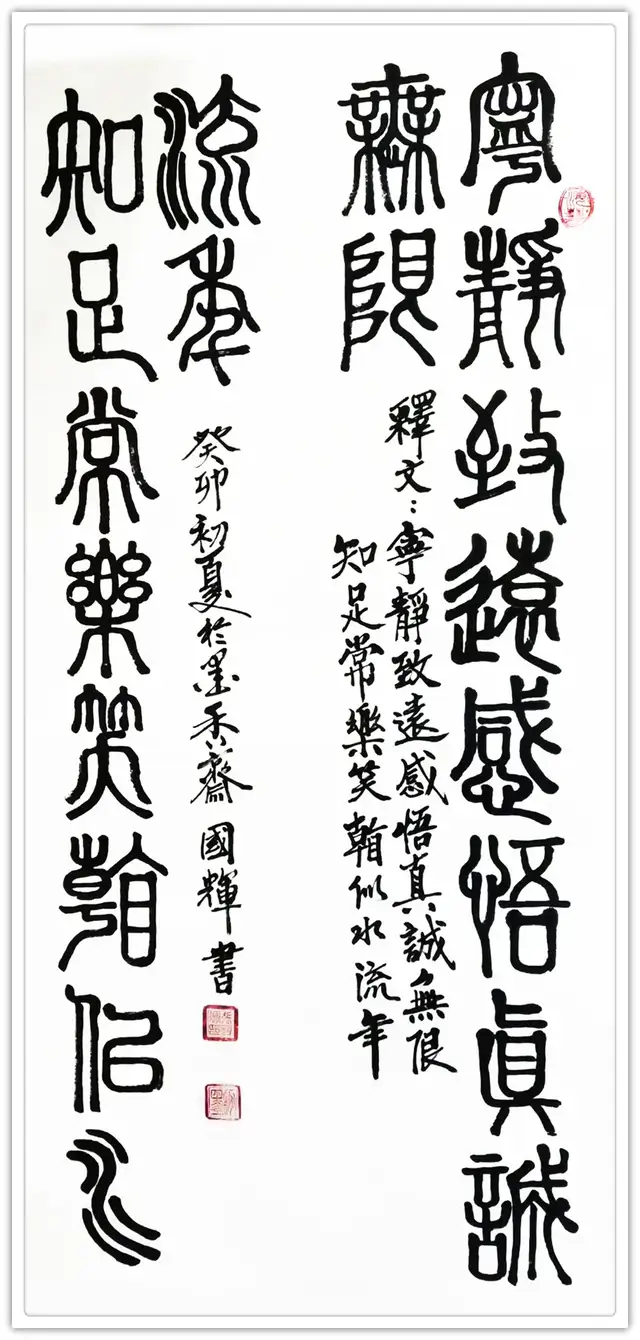 寧靜致遠感悟真誠
無限
釋文：寧靜致遠感悟真誠無限
知足常樂笑看似水流年
知足常樂笑看似水
流年
癸卯初夏於墨香齋國輝書